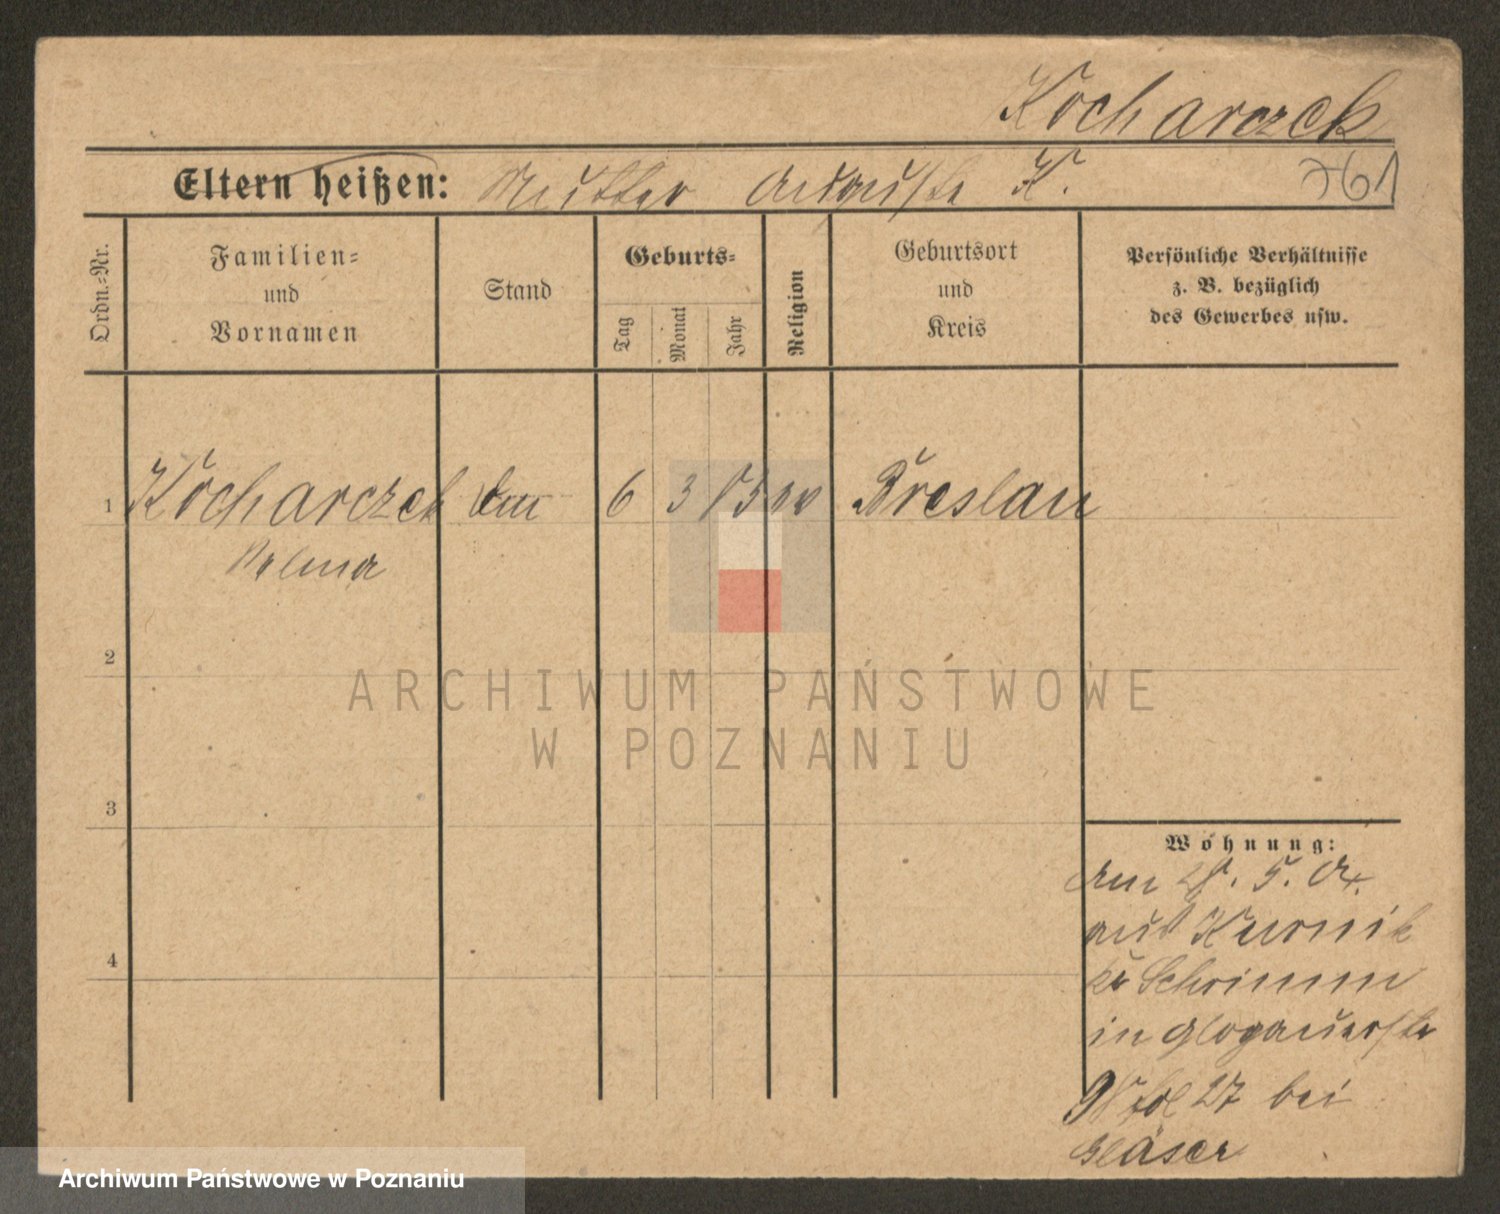 Kocharczek
Eltern heißen: Mutter Auguste K.
761
Ordn.-Nr.
Familien-
und
Vornamen
Stand
Geburts-
Tag
Monat
Jahr
Religion
Geburtsort
und
Kreis
Persönliche Verhältnisse
z. B. bezüglich
des Gewerbes usw.
1 Kocharczek 6 3 Breslau
Selma
2
ARCHIWUM PAŃSTWOWE
W POZNANIU
3
Wohnung:
Am 5.
aus Kurnik
Kr Schrimm
in Glogauerstr
27 bei
Gläser
4
Archiwum Państwowe w Poznaniu